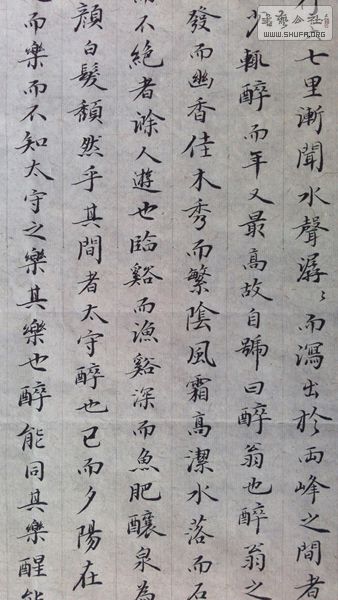 七里漸聞水聲潺〻而瀉出於兩峰之間者
少輒醉而年又最高故自號曰醉翁也醉翁之
發而幽香佳木秀而繁陰風霜高潔水落而石
而不絕者滁人遊也臨谿而漁谿深而魚肥釀泉為
顏白髮頹然乎其間者太守醉也已而夕陽在
而樂而不知太守之樂其樂也醉能同其樂醒能
書藝公社
WWW.SHUFA.ORG